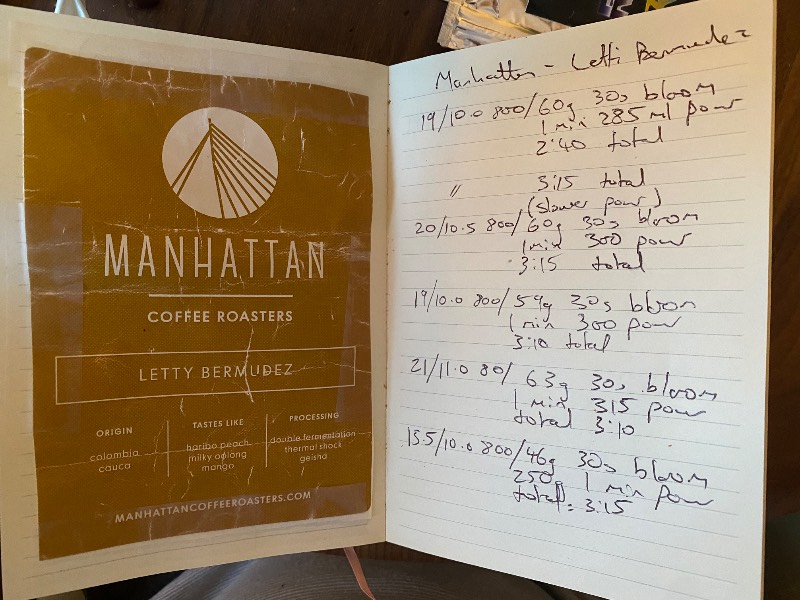 MANHATTAN
COFFEE ROASTERS
LETTY BERMUDEZ
ORIGIN
colombia
cauca
TASTES LIKE
haribo peach
milky oolong
mango
PROCESSING
double fermentation
thermal shock
geisha
MANHATTANCOFFEEROASTERS.COM
Manhattan - Letti Bermudez
19/10.0 800/60g 30s bloom
1 min 285 ml pour
2:40 total
" 3:15 total
(slower pour)
20/10.5 800/60g 30s bloom
1 min 300 pour
3:15 total
19/10.0 800/59g 30s bloom
1 min 300 pour
3:10 total
21/11.0 80/63g 30s bloom
1 min 315 pour
total 3:10
15.5/10.0 800/46g 30s bloom
250g 1 min pour
total: 3:15